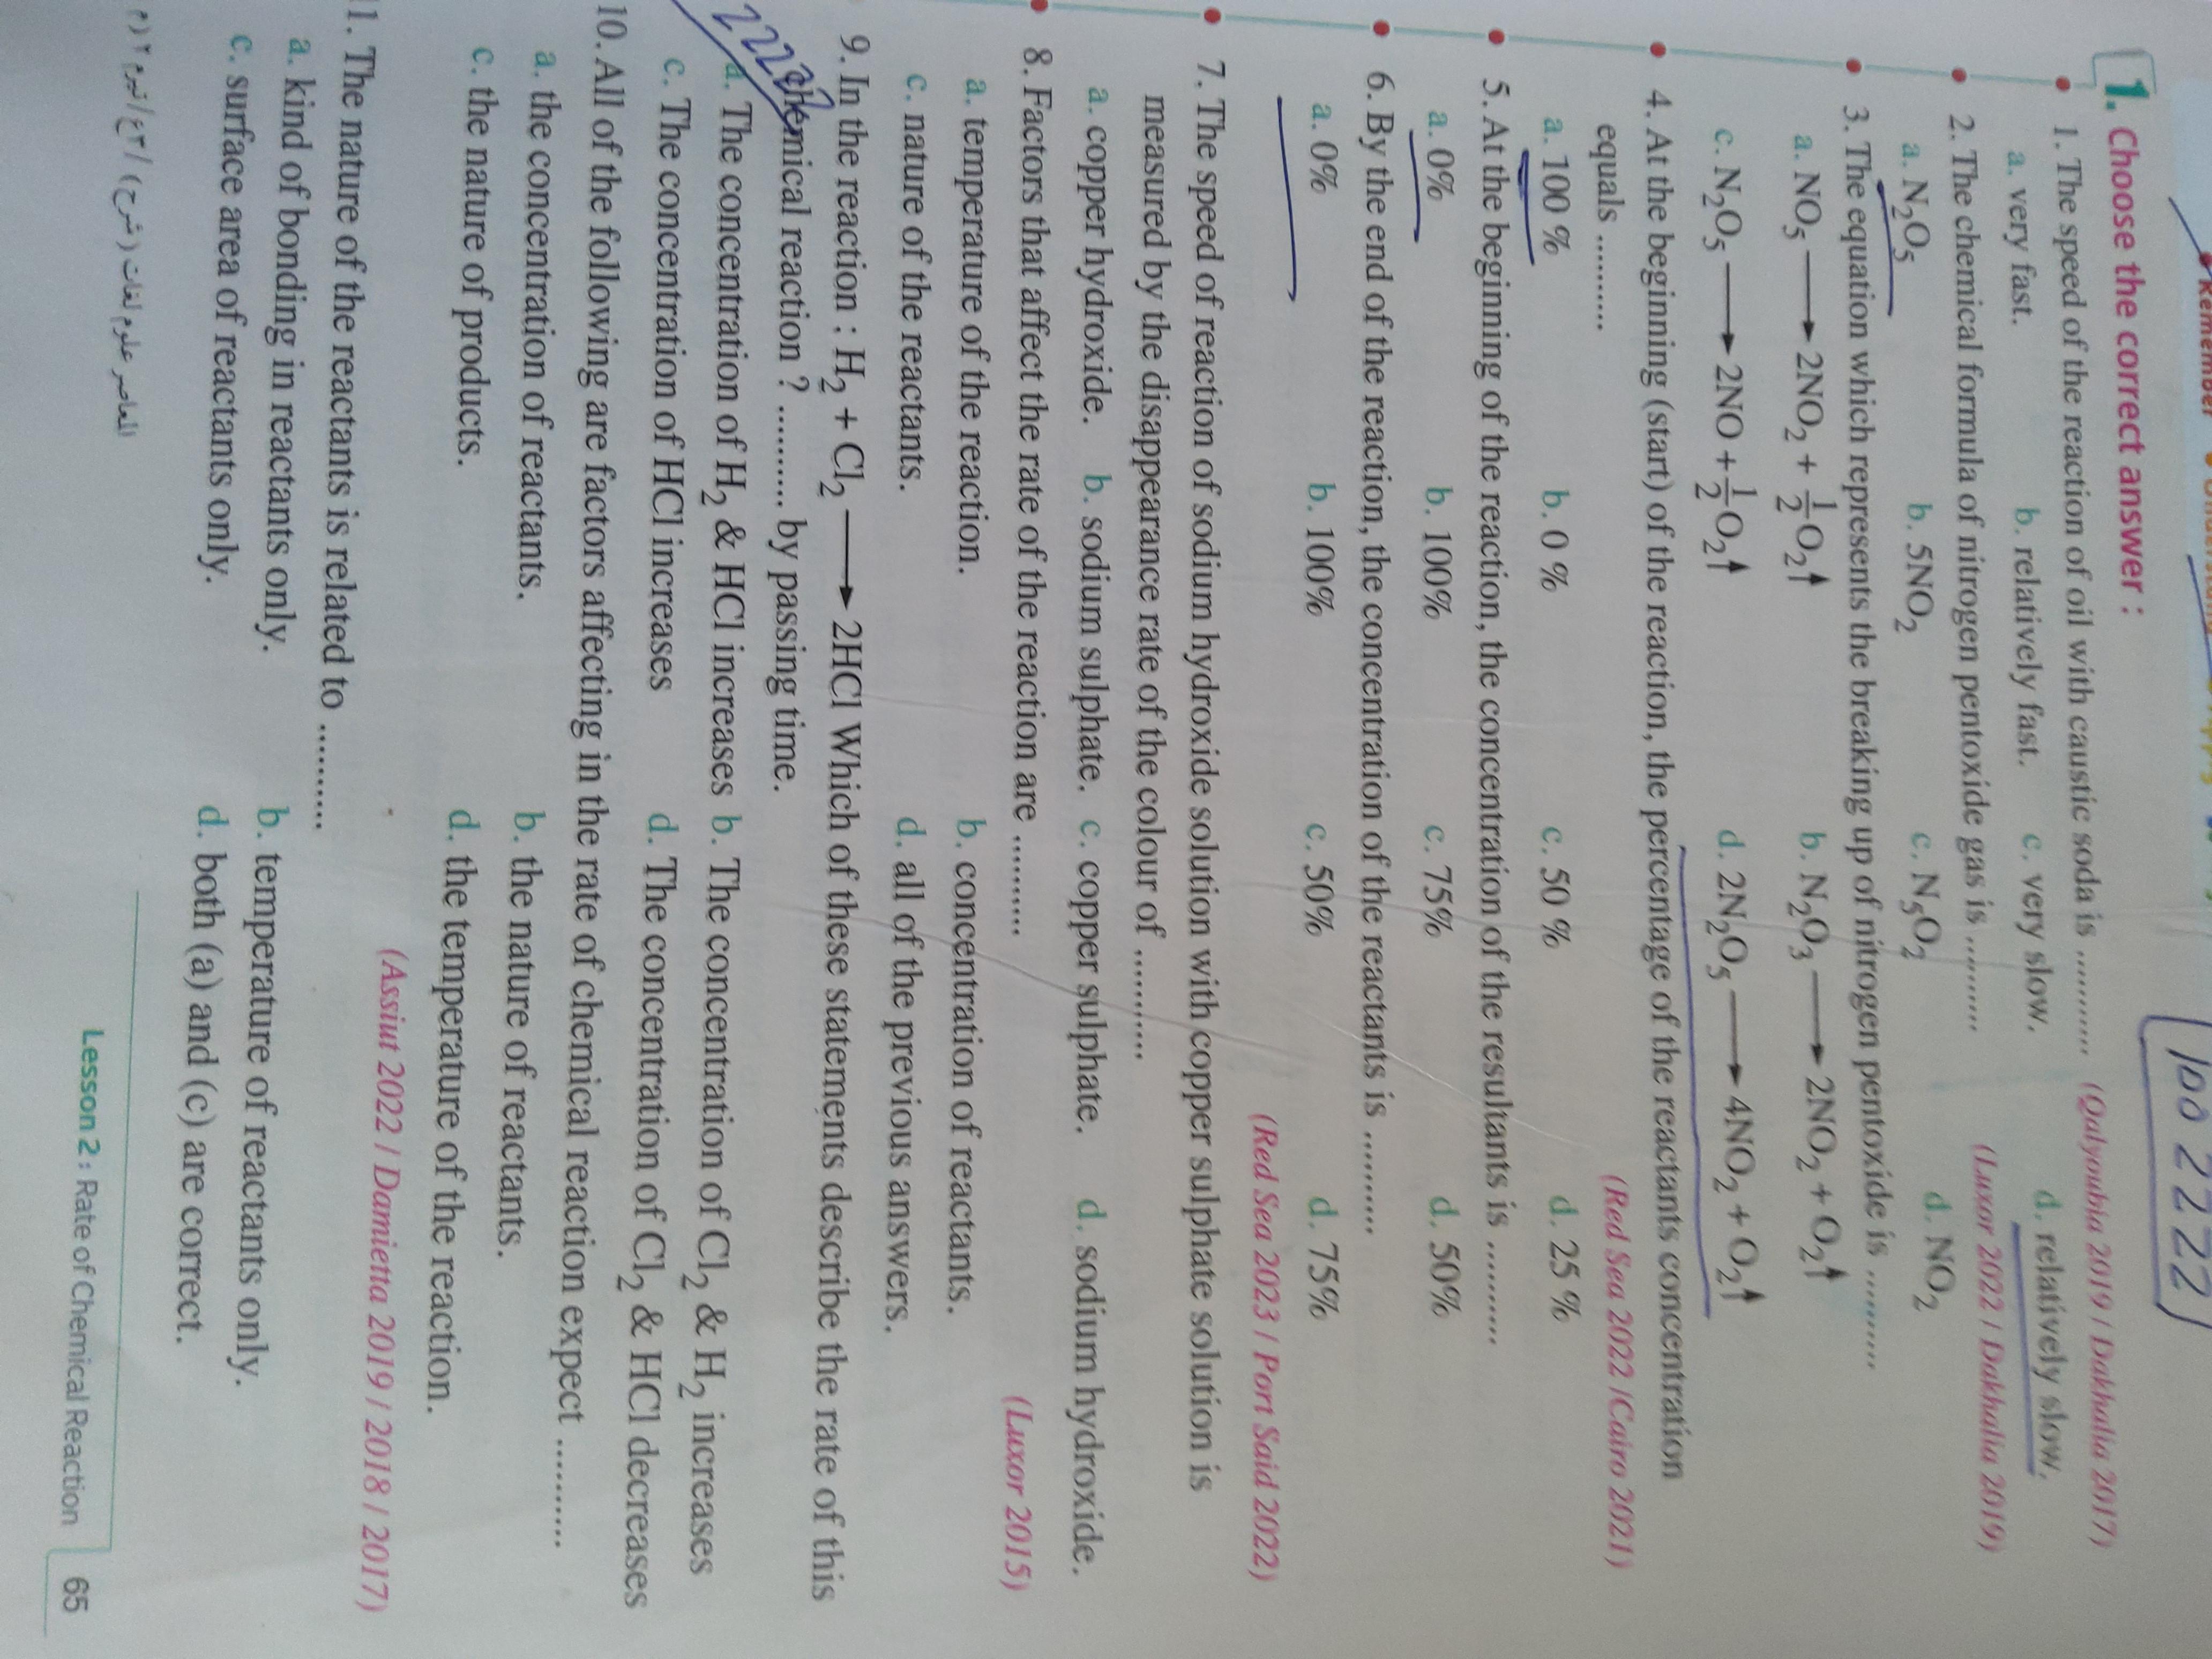 100 2222
1. Choose the correct answer :
1. The speed of the reaction of oil with caustic soda is .......... (Qalyoubia 2019 / Dakhalia 2017)
a. very fast. b. relatively fast. c. very slow. d. relatively slow.
2. The chemical formula of nitrogen pentoxide gas is .......... (Luxor 2022 / Dakhalia 2019)
a. N₂O₅ b. 5NO₂ c. N₅O₂ d. NO₂
3. The equation which represents the breaking up of nitrogen pentoxide is ..........
a. NO₅ ⟶ 2NO₂ + ½O₂↑ b. N₂O₃ ⟶ 2NO₂ + O₂↑
c. N₂O₅ ⟶ 2NO + ½O₂↑ d. 2N₂O₅ ⟶ 4NO₂ + O₂↑
4. At the beginning (start) of the reaction, the percentage of the reactants concentration
equals .......... (Red Sea 2022 /Cairo 2021)
a. 100 % b. 0 % c. 50 % d. 25 %
5. At the beginning of the reaction, the concentration of the resultants is ..........
a. 0% b. 100% c. 75% d. 50%
6. By the end of the reaction, the concentration of the reactants is ..........
a. 0% b. 100% c. 50% d. 75%
(Red Sea 2023 / Port Said 2022)
7. The speed of reaction of sodium hydroxide solution with copper sulphate solution is
measured by the disappearance rate of the colour of ..........
a. copper hydroxide. b. sodium sulphate. c. copper sulphate. d. sodium hydroxide.
8. Factors that affect the rate of the reaction are .......... (Luxor 2015)
a. temperature of the reaction. b. concentration of reactants.
c. nature of the reactants. d. all of the previous answers.
9. In the reaction : H₂ + Cl₂ ⟶ 2HCl Which of these statements describe the rate of this
chemical reaction ? .......... by passing time.
2222
a. The concentration of H₂ & HCl increases b. The concentration of Cl₂ & H₂ increases
c. The concentration of HCl increases d. The concentration of Cl₂ & HCl decreases
10. All of the following are factors affecting in the rate of chemical reaction expect ..........
a. the concentration of reactants. b. the nature of reactants.
c. the nature of products. d. the temperature of the reaction.
(Assiut 2022 / Damietta 2019 / 2018 / 2017)
11. The nature of the reactants is related to ..........
a. kind of bonding in reactants only. b. temperature of reactants only.
c. surface area of reactants only. d. both (a) and (c) are correct.
المعاصر علوم لغات (شرح)
Lesson 2 : Rate of Chemical Reaction 65